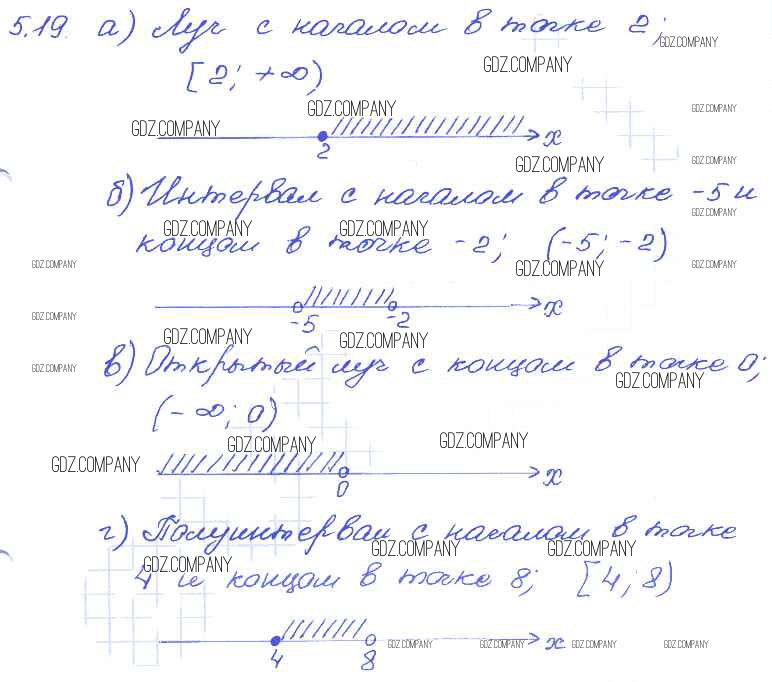 5.19. а) Луч с началом в точке 2;
GDZ.COMPANY
[2; +∞)
GDZ.COMPANY
GDZ.COMPANY
GDZ.COMPANY
GDZ.COMPANY
x
2
GDZ.COMPANY
GDZ.COMPANY
б) Интервал с началом в точке -5 и
GDZ.COMPANY
GDZ.COMPANY
GDZ.COMPANY
концом в точке -2; (-5; -2)
GDZ.COMPANY
GDZ.COMPANY
GDZ.COMPANY
x
-5
-2
GDZ.COMPANY
GDZ.COMPANY
GDZ.COMPANY
в) Открытый луч с концом в точке 0;
GDZ.COMPANY
GDZ.COMPANY
(-∞; 0)
GDZ.COMPANY
GDZ.COMPANY
GDZ.COMPANY
x
0
г) Полуинтервал с началом в точке
GDZ.COMPANY
GDZ.COMPANY
GDZ.COMPANY
4 и концом в точке 8; [4; 8)
x
4
8
GDZ.COMPANY
GDZ.COMPANY
GDZ.COMPANY
GDZ.COMPANY